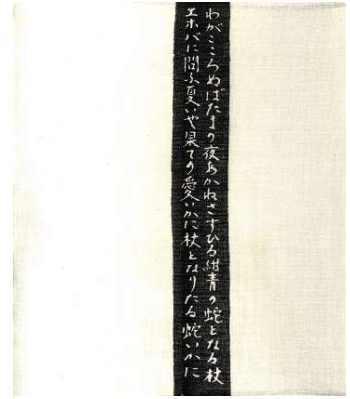 わがこころぬばたまの夜あかねさすひる紺青の蛇となる杖
エホバに問ふ夏いや果ての愛いかに杖となりたる蛇いかに